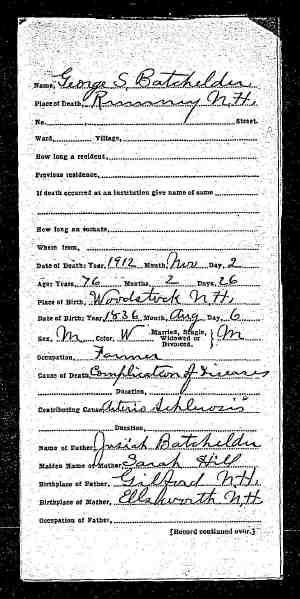 Name, George S. Batchelder
Place of Death, Rumney N.H.
No. Street.
Ward, Village,
How long a resident,
Previous residence,
If death occurred at an institution give name of same
How long an inmate,
Where from,
Date of Death: Year, 1912 Month, Nov Day, 2
Age: Years, 76 Months, 2 Days, 26
Place of Birth, Woodstock N.H.
Date of Birth: Year, 1836 Month, Aug Day, 6
Sex, M Color, W Married, Single, Widowed or Divorced, } M
Occupation, Farmer
Cause of Death, Complication of Diseases
Duration,
Contributing Cause, Arterio Schlerosis
Duration,
Name of Father, Josiah Batchelder
Maiden Name of Mother, Sarah Hill
Birthplace of Father, Gilford N.H.
Birthplace of Mother, Ellsworth N.H.
Occupation of Father,
[Record continued over.]